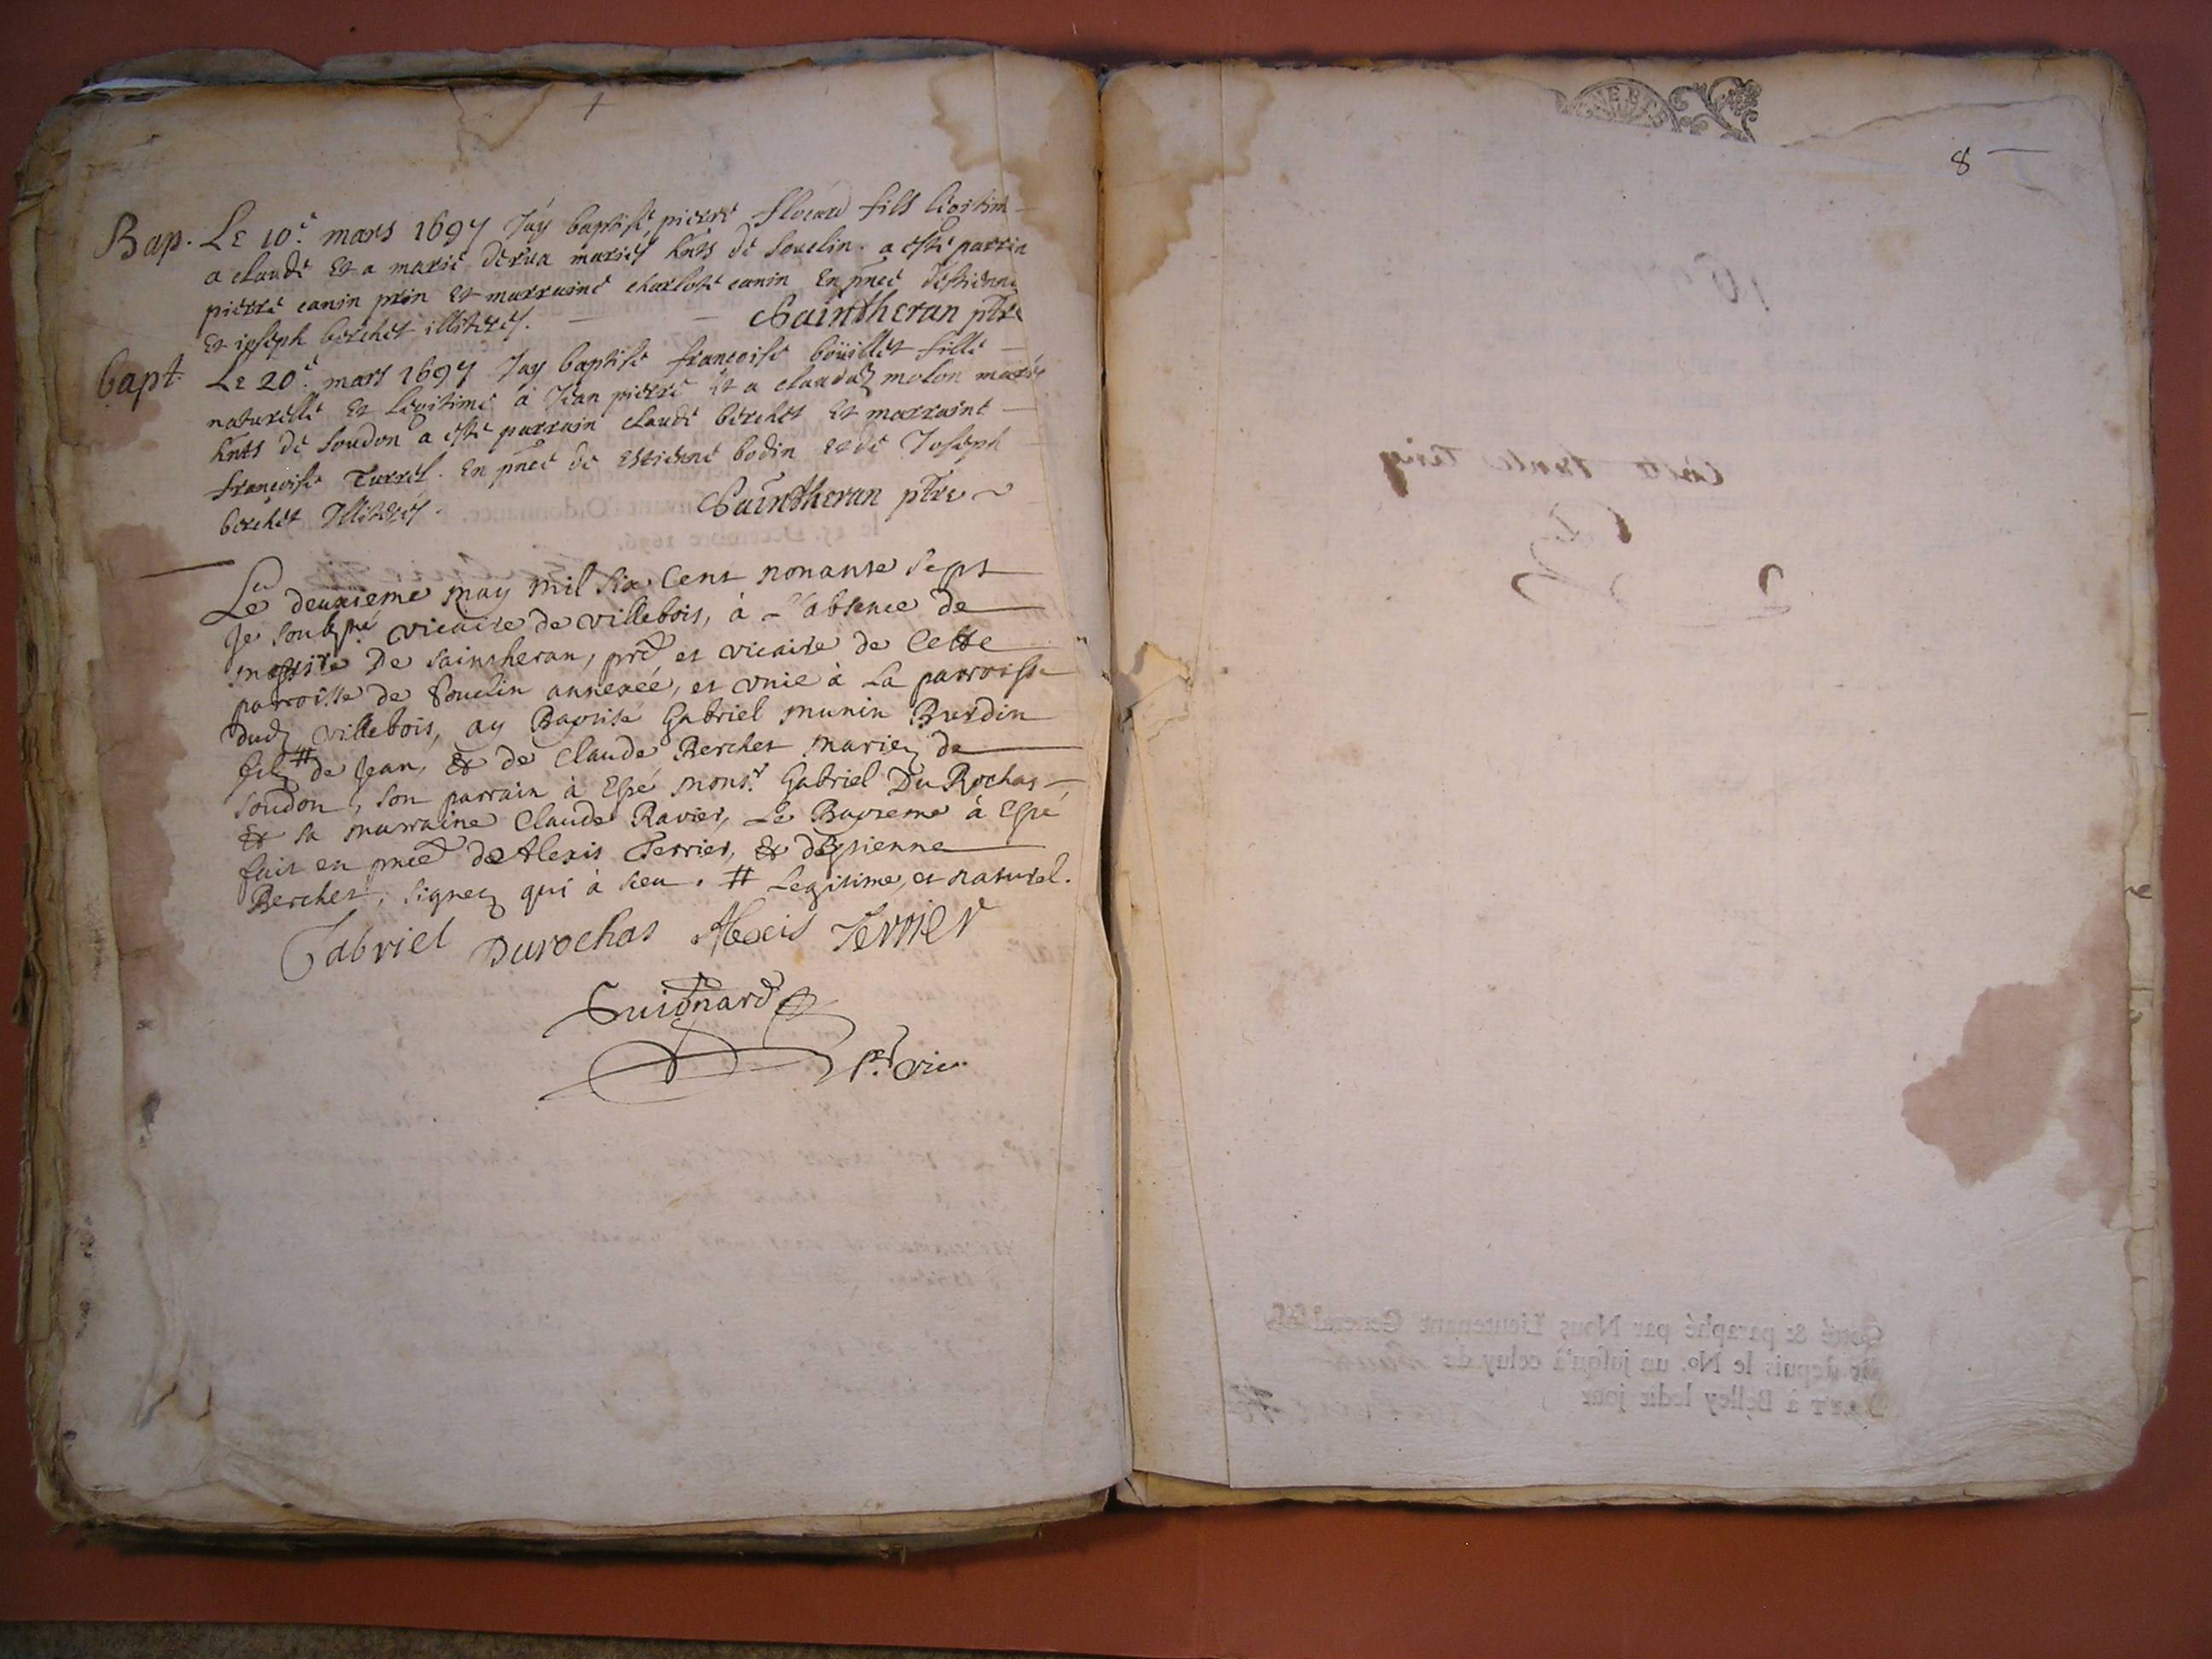 Bap. Le 10e. mars 1697 Jay baptisé, pierre flocard fils légitim
a claude Et a marie derua mariés hnts de souclin. a esté parrin
pierre canin prin Et marraine charlote canin En pnce destienne
Et ioseph berchet illiterés. Sainctheran ptre
bapt. Le 20e. mars 1697 Jay baptisé francoise boüillet fille
naturelle Et Légitime à Jean pierre Et a claudaz molon mariés
hnts de soudon a esté parrain claude berchet Et marraine
francoise Turrel. En pnce de Estienne bodin et de Joseph
berchet Illiterés. Sainctheran ptre
Le deuxieme may mil six cent nonante sept
Je soubsné vicaire de villebois, à L'absence de
messire De saintheran, pre et vicaire de Cette
parroisse de souclin annexeé, et vnie à La parroisse
dud villebois, ay Baptisé Gabriel munin Burdin
filz # de Jean, & de Claude Berchet mariez de
soudon, son parrain à Esté monsr. Gabriel Du Rochas
& sa marraine Claude Ravier, Le Bapteme à Esté
fait en pnce de Alexis Terrier, & destienne
Berchet, signez qui à sceu. # Legitime, et naturel.
Gabriel Durochas Alexis Terrier
Guionard
ptr vic.
8
Cotté & paraphé par Nous Lieutenant General
depuis le No. un jusqu'à celuy de
à Belley ledit jour